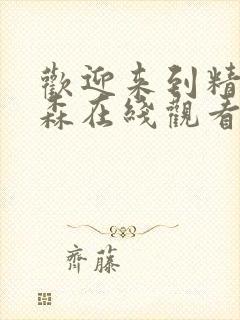 歡迎来到精
森在綫觀看
齊藤